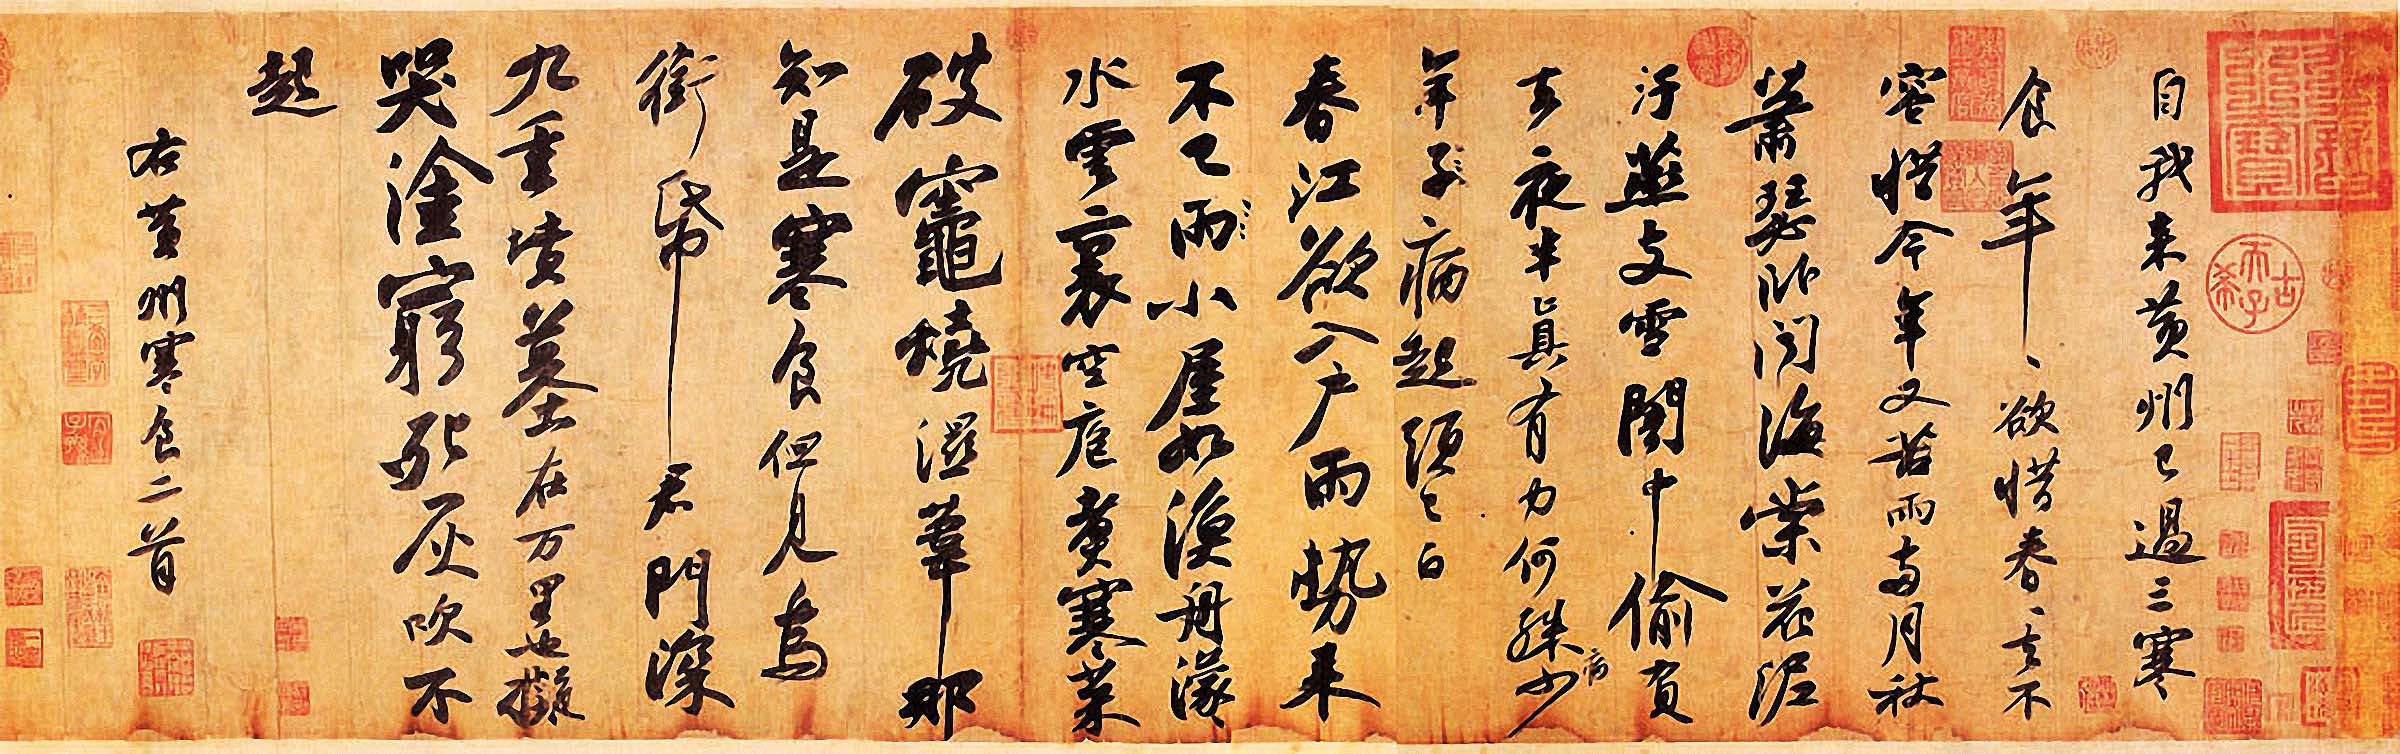 自我来黄州已過三寒
食年〻欲惜春〻去不
容惜今年又苦雨两月秋
蕭瑟卧聞海棠花泥
汙燕支雪闇中偷負
去夜半真有力何殊少病
年子病起頭已白
春江欲入户雨勢来
不已雨小屋如漁舟濛〻
水雲裏空庖煮寒菜
破竈燒濕葦那
知是寒食但見烏
銜帋君門深
九重墳墓在万里也擬
哭塗窮死灰吹不
起
右黄州寒食二首
古希天子